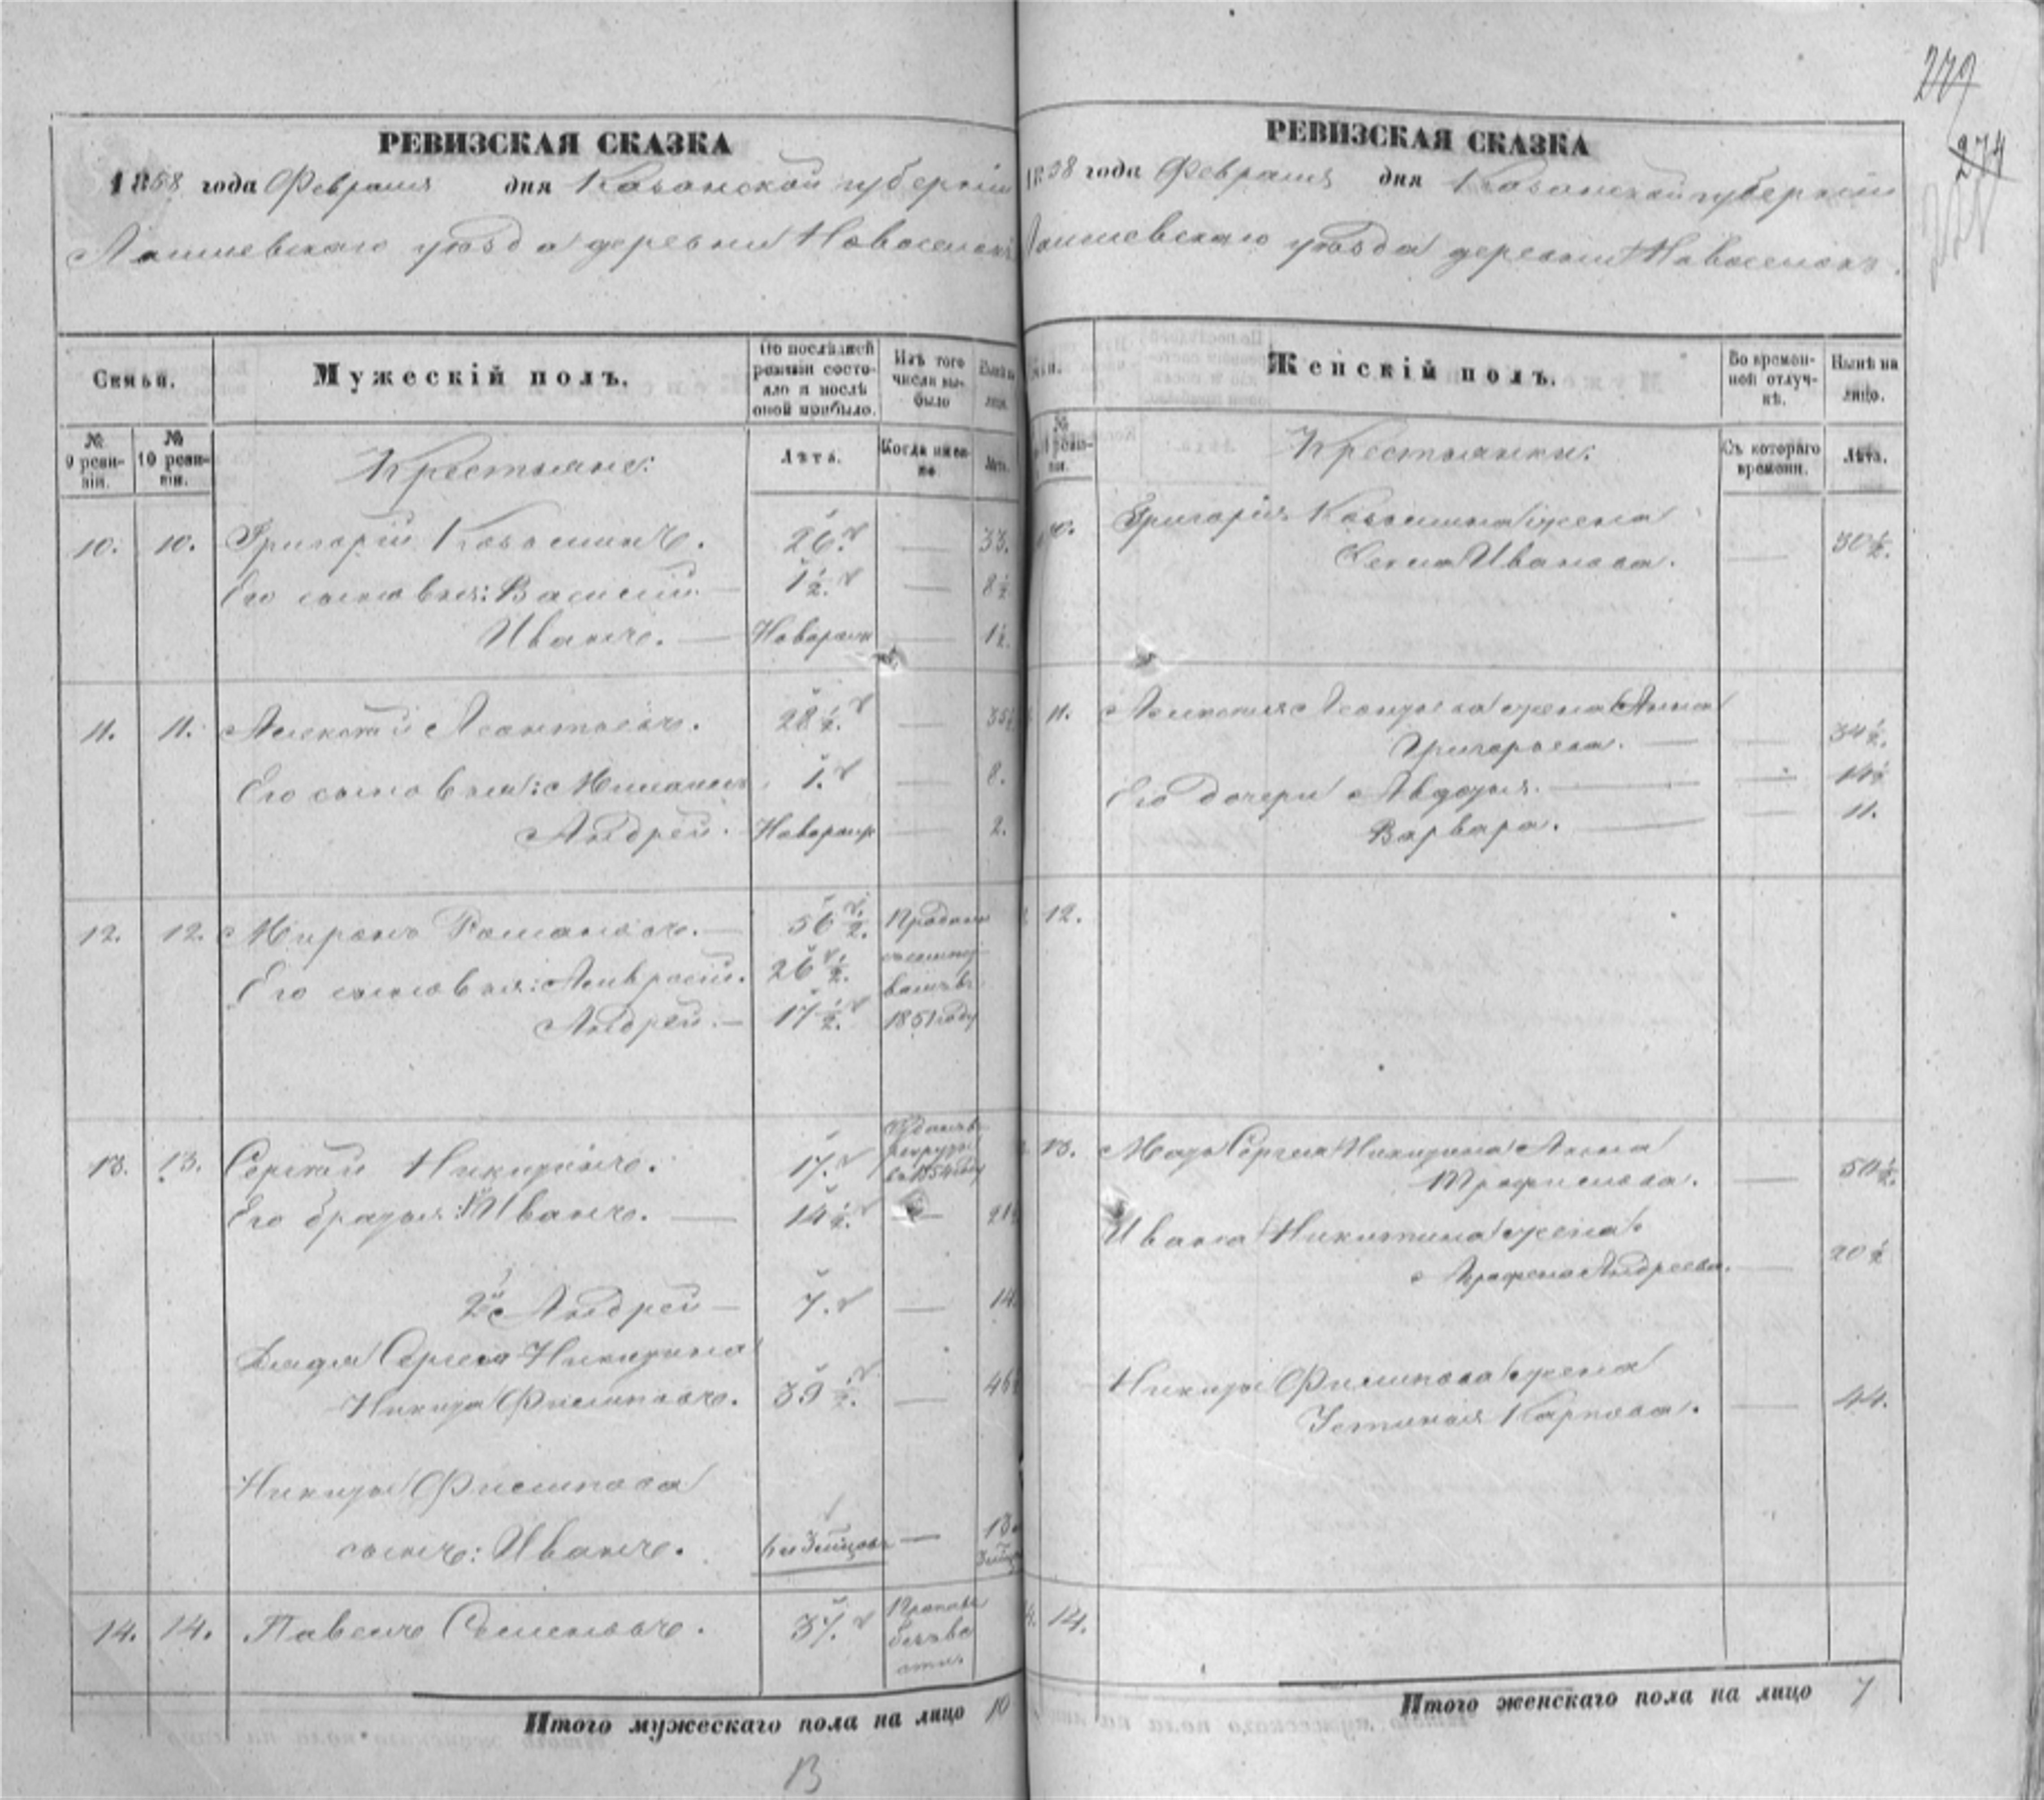 279
274
РЕВИЗСКАЯ СКАЗКА
1858 года Февраля дня Казанской губернии
Лаишевскаго уѣзда деревни Новоселокъ
Семьи.
Мужескій полъ.
По послѣдней ревизіи состояло и послѣ оной прибыло.
Изъ того числа выбыло
Нынѣ на лицо.
№ 9 ревизіи.
№ 10 ревизіи.
Крестьяне:
Лѣта.
Когда именно
Лѣта.
10. 10. Григорій Козминъ. 26. — 33.
Его сыновья: Василій — 1½. — 8½
Иванъ. — Новорожд — 1½.
11. 11. Алексѣй Леонтьевъ. 28½. — 35½
Его сыновья: 1. — 8.
Андрей. Новорожд — 2.
12. 12. Миронъ Романовъ. — 56½. Проданы
Его сыновья: Амвросій. 26½.
Андрей. — 17½. 1851 году
13. 13. Сергѣй Никитинъ. 17. Отданъ въ рекруты въ 1854 году
Его братья: 1й Иванъ. — 14½. — 21½
2й Андрей — 7. — 14.
Дядя Сергея Никитина
Никита Филиповъ. 39½. — 46½
Никиты Филипова
сынъ: Иванъ. — 13.
14. 14. Павелъ Семеновъ. 37. Пропалъ безъ вести
Итого мужескаго пола на лицо 10
13
РЕВИЗСКАЯ СКАЗКА
1858 года Февраля дня Казанской губерніи
Лаишевскаго уѣзда деревни Новоселокъ.
Женскій полъ.
Во временной отлучкѣ.
Нынѣ на лицо.
Крестьянки:
Съ котораго времени.
Лѣта.
10. Григорія Козмина жена
Иванова. — 30½.
11. Алексѣя Леонтьева жена Анна
Григорьева. — 34½.
Его дочери Авдотья. — 14½
Варвара. — 11.
12.
13. Мать Сергея Никитина Анна
Трофимова. — 50½.
Ивана Никитина жена
Аграфена Андреева. — 20½
Никиты Филипова жена
Устинья Карпова. — 44.
14. 14.
Итого женскаго пола на лицо 7